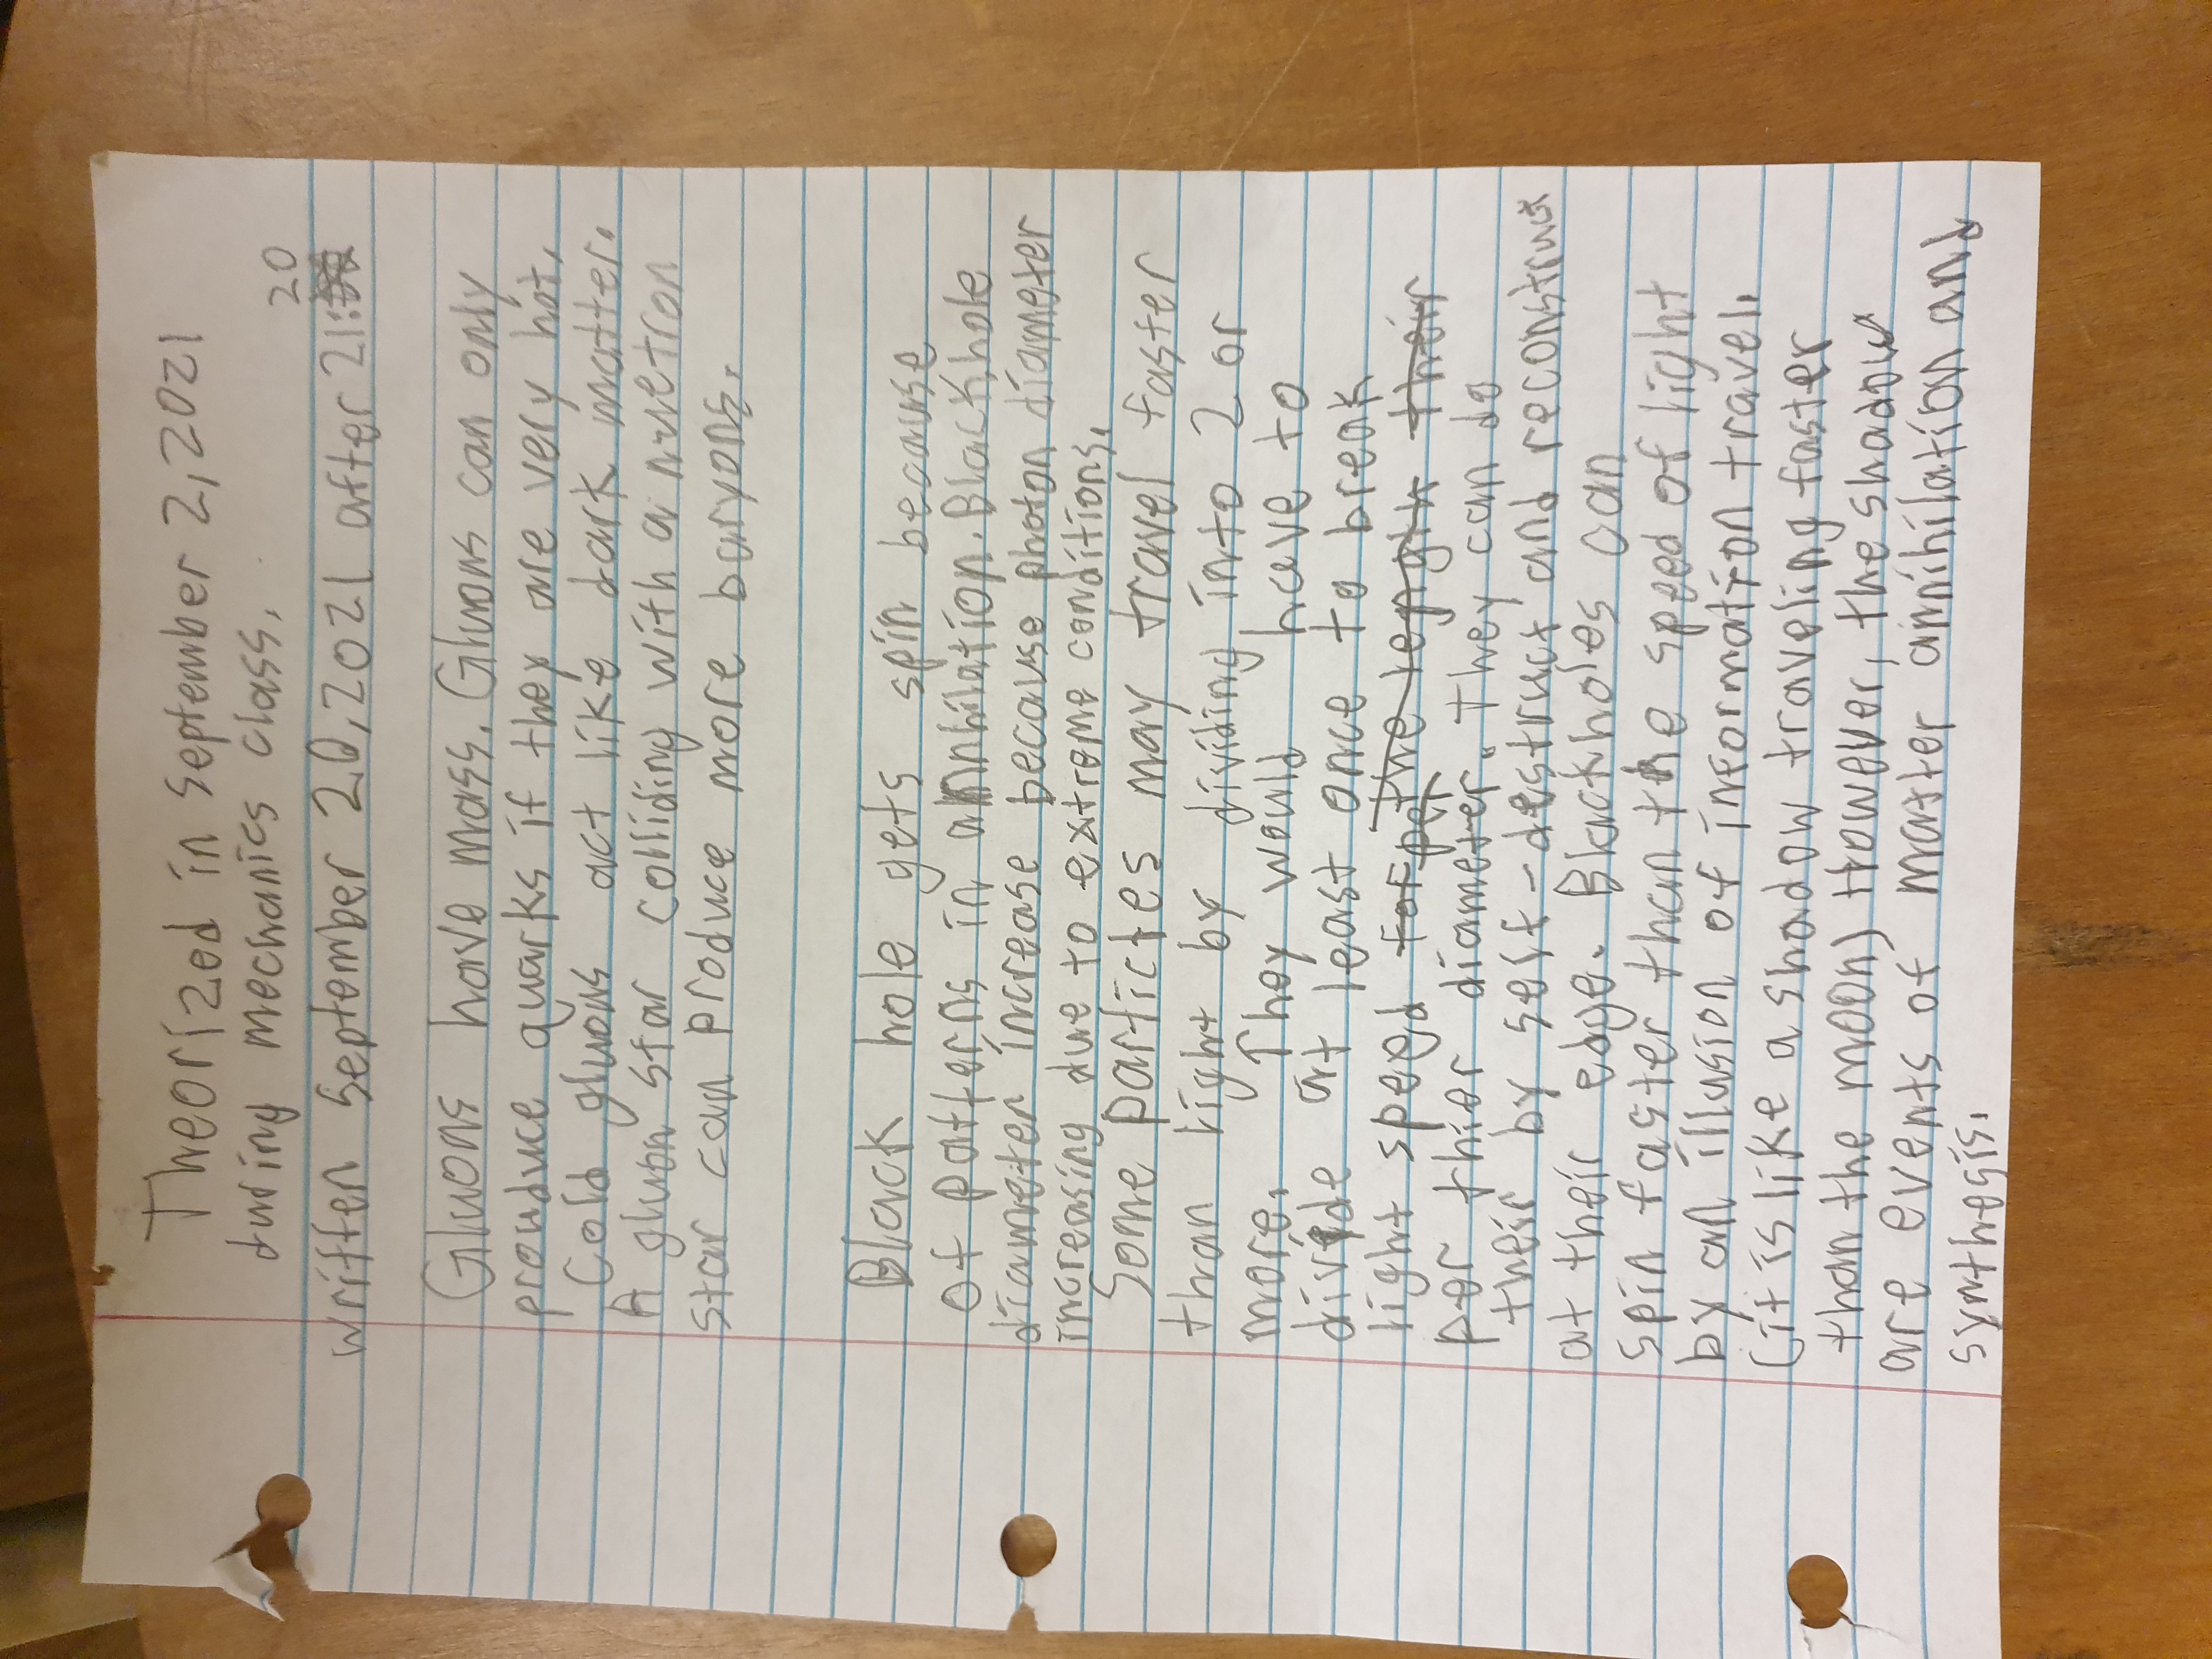 Theorized in September 2, 2021
during mechanics class.
20
written September 20, 2021 after 21:
Gluons have mass. Gluons can only
prouduce quarks if they are very hot.
Cold gluons act like dark matter.
A gluon star colliding with a nuetron
star can produce more baryons.
Black hole gets spin because
of patterns in annhilation. Black hole
diameter increase because photon diameter
increasing due to extreme conditions.
Some particles may travel faster
than light by dividing into 2 or
more. They would have to
divide at least once to break
light speed for per the length their
per thier diameter. They can do
their by self-destruct and reconstruct
at their edge. Blackholes can
spin faster than the speed of light
by an illusion of information travel.
(it is like a shadow traveling faster
than the moon) However, the shadow
are events of matter annihilation and
synthesis.